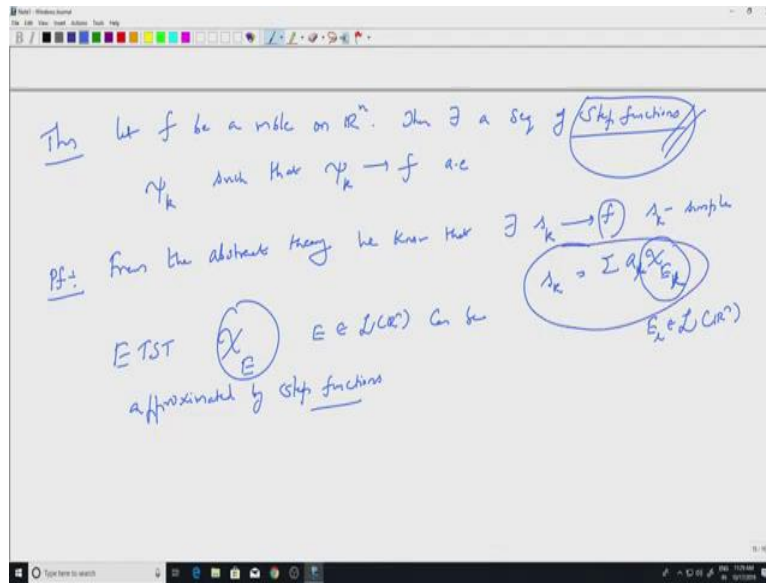 Note1 - Windows Journal
File Edit View Insert Actions Tools Help
Thm let f be a mble on ℝⁿ. Then ∃ a seq of step functions
ψ_k such that ψ_k → f a.e
Pf:- From the abstract theory we know that ∃ s_k → f s_k - simple
s_k = Σ a_k χ_{E_k}
E_i ∈ L(ℝⁿ)
ETST χ_E E ∈ L(ℝⁿ) can be
approximated by step functions
Type here to search